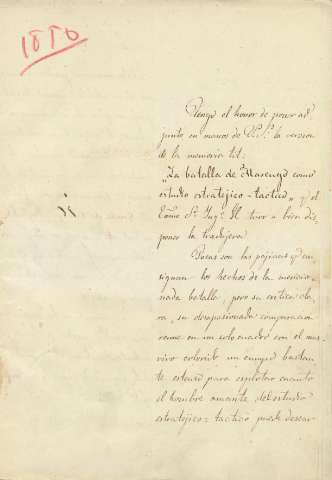 1850
Tengo el honor de poner ad
junto en manos de V. S.ª la version
de la memoria tit:
"La batalla de Marengo como
estudio estratéjico-tactico" q. el
Exmo Sr. Ing.º Gl. tuvo a bien dis
poner la tradujera
Pocas son las pájinas q. con
signan los hechos de la mencio
nada batalla, pero su critica cla
ra, su desapasionada comparacion
reune en un solo cuadro con el mas
vivo colorido un conjunto bastan
te estenso para esplotar cuanto
el hombre amante del estudio
estratejico-tactico puede desear